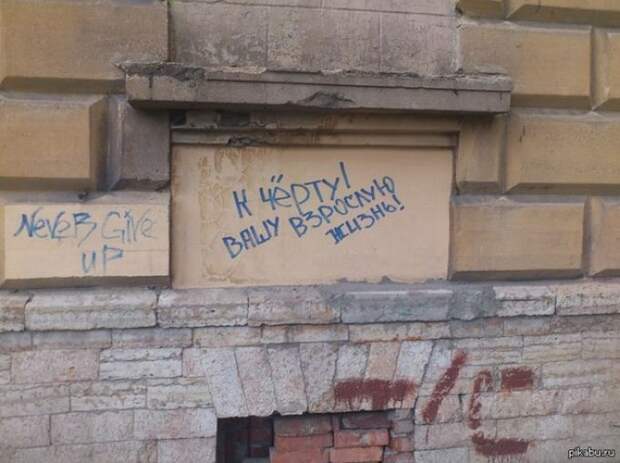 NeveR Give
UP
К чёрту!
ВАШУ ВЗРОСЛУЮ
ЖИЗНЬ!
pikabu.ru